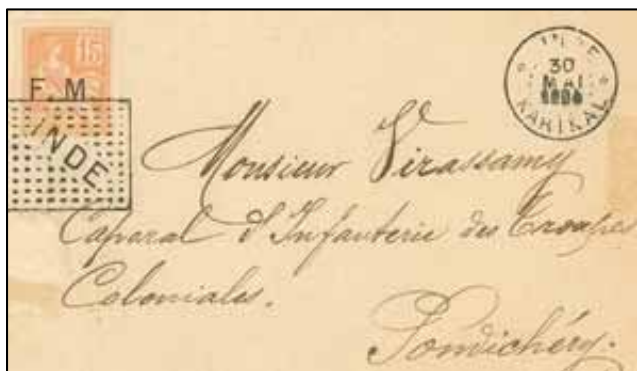 15
F. M.
INDE
INDE
30
MAI
KARIKAL
Monsieur Virassamy
Caporal d'Infanterie des Troupes
Coloniales.
Pondichéry.